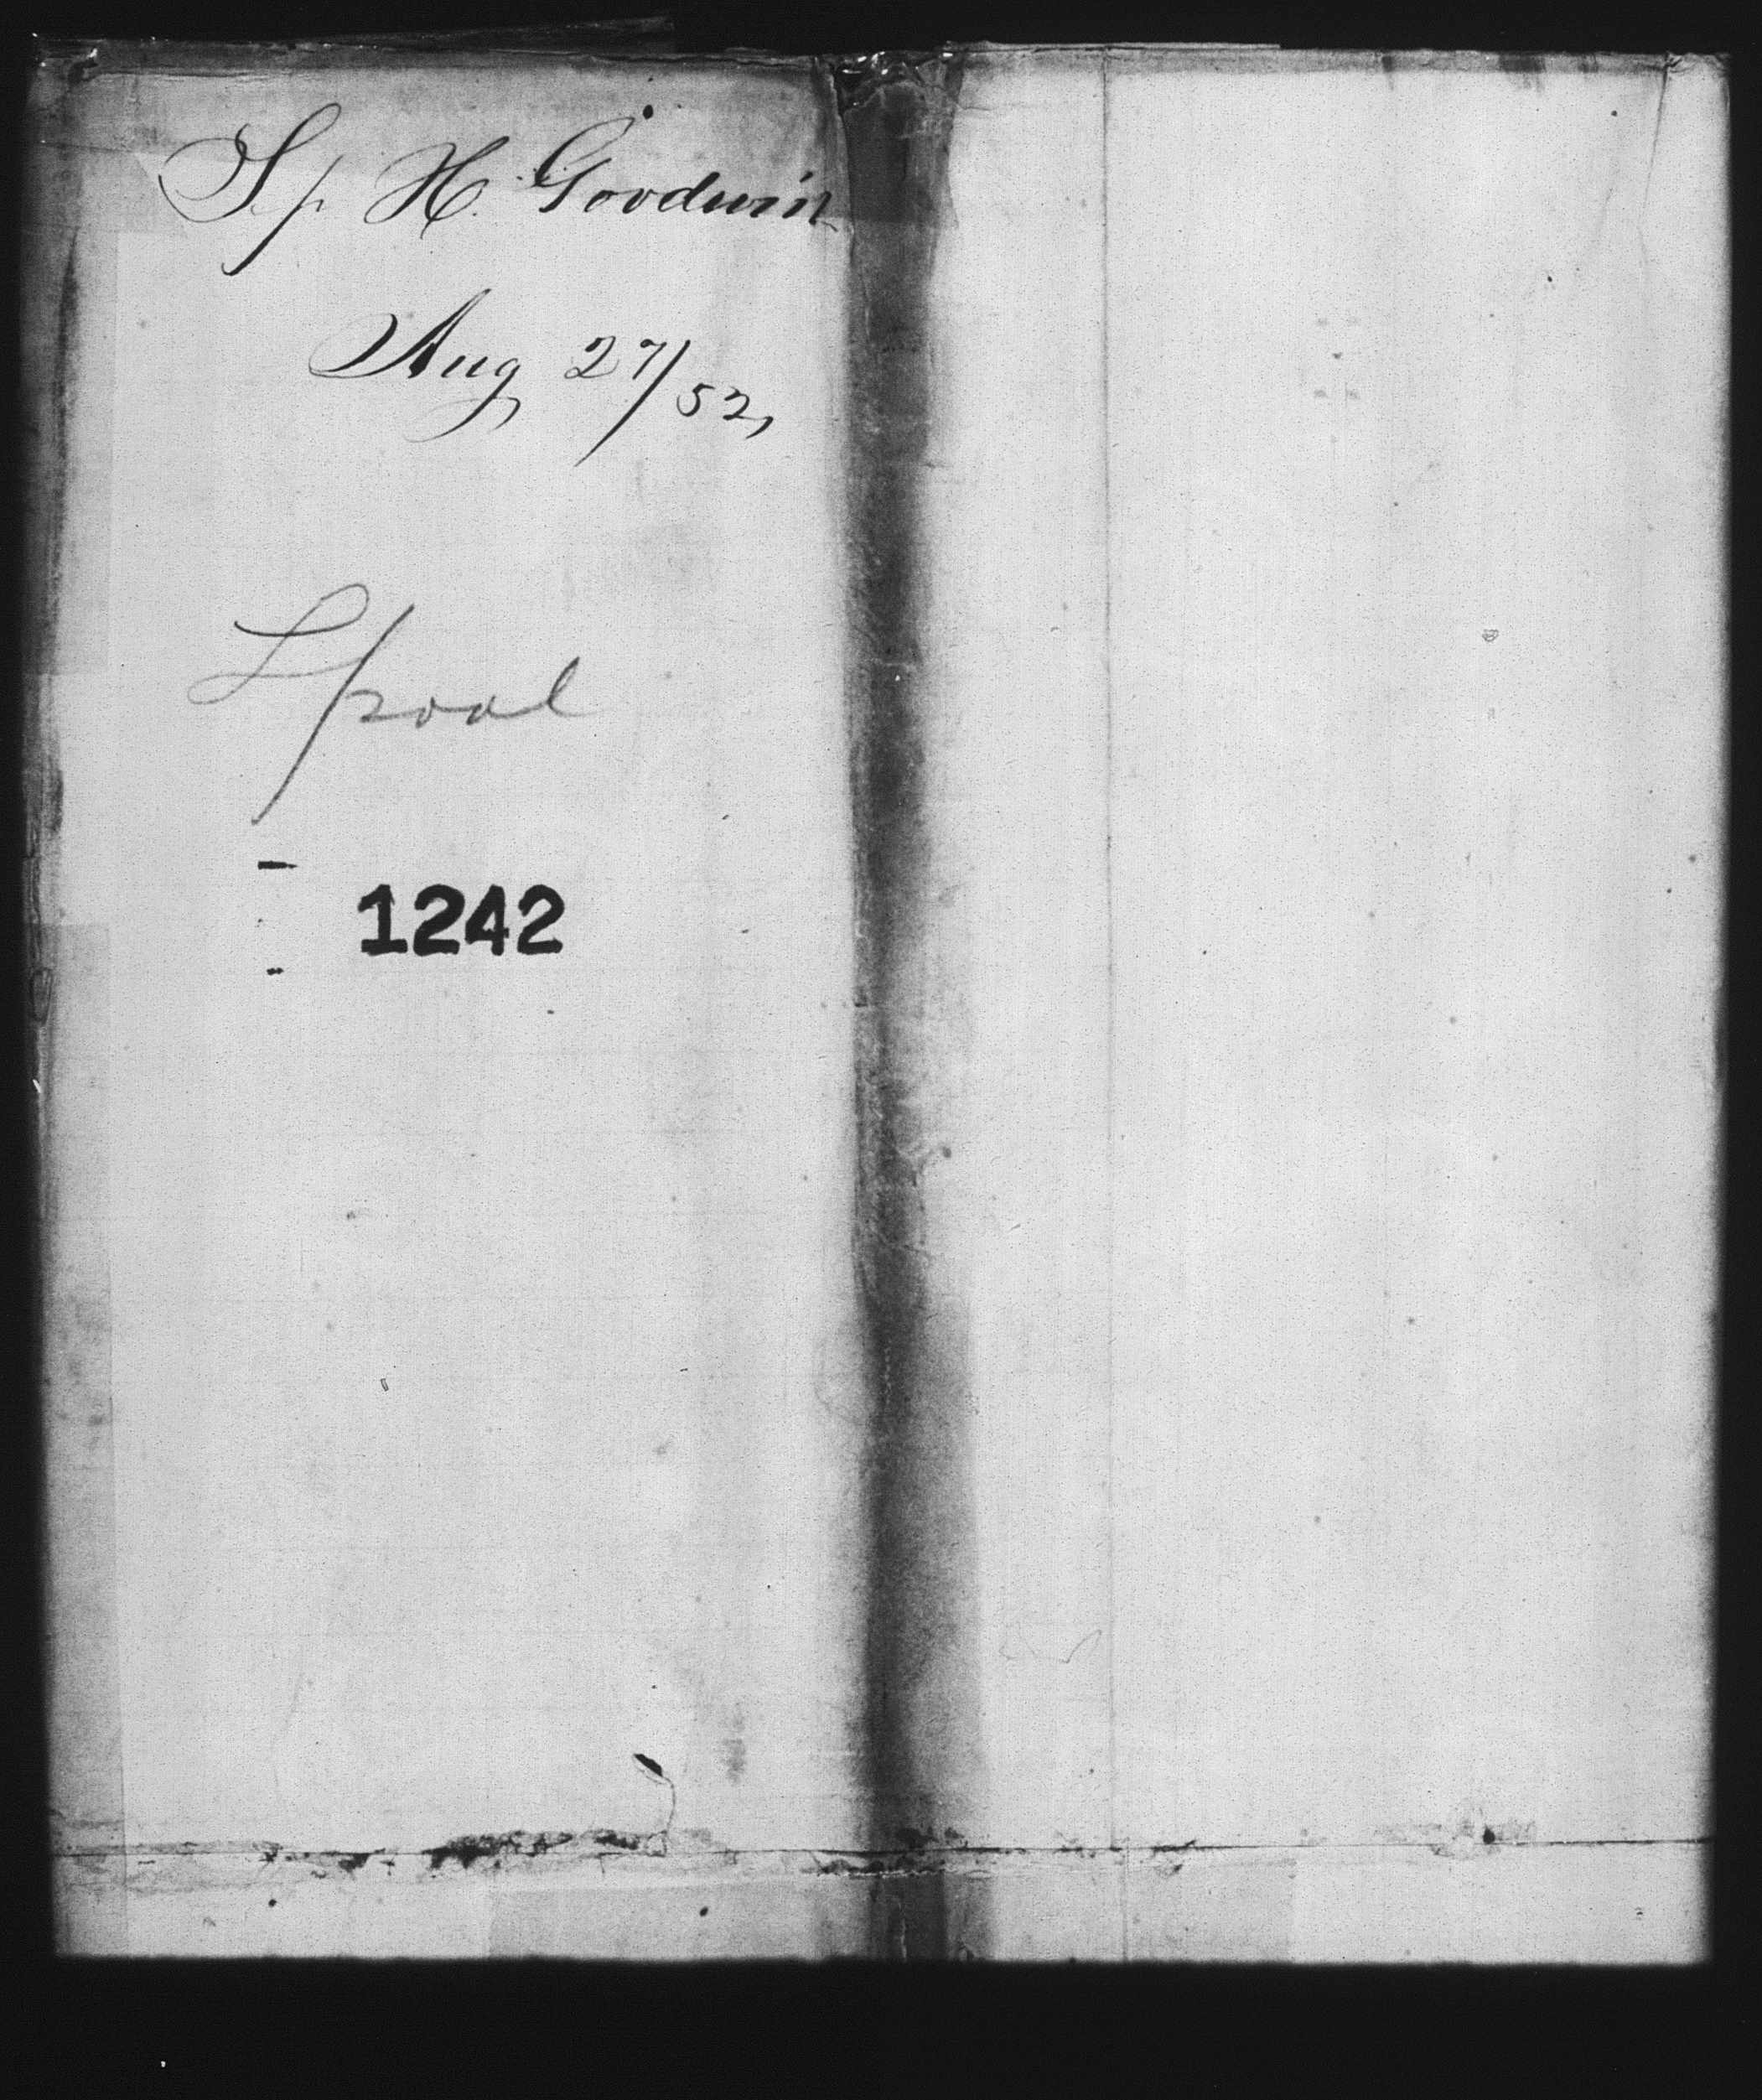 Sp H. Goodwin
Aug 27/52,
Lpool
1242